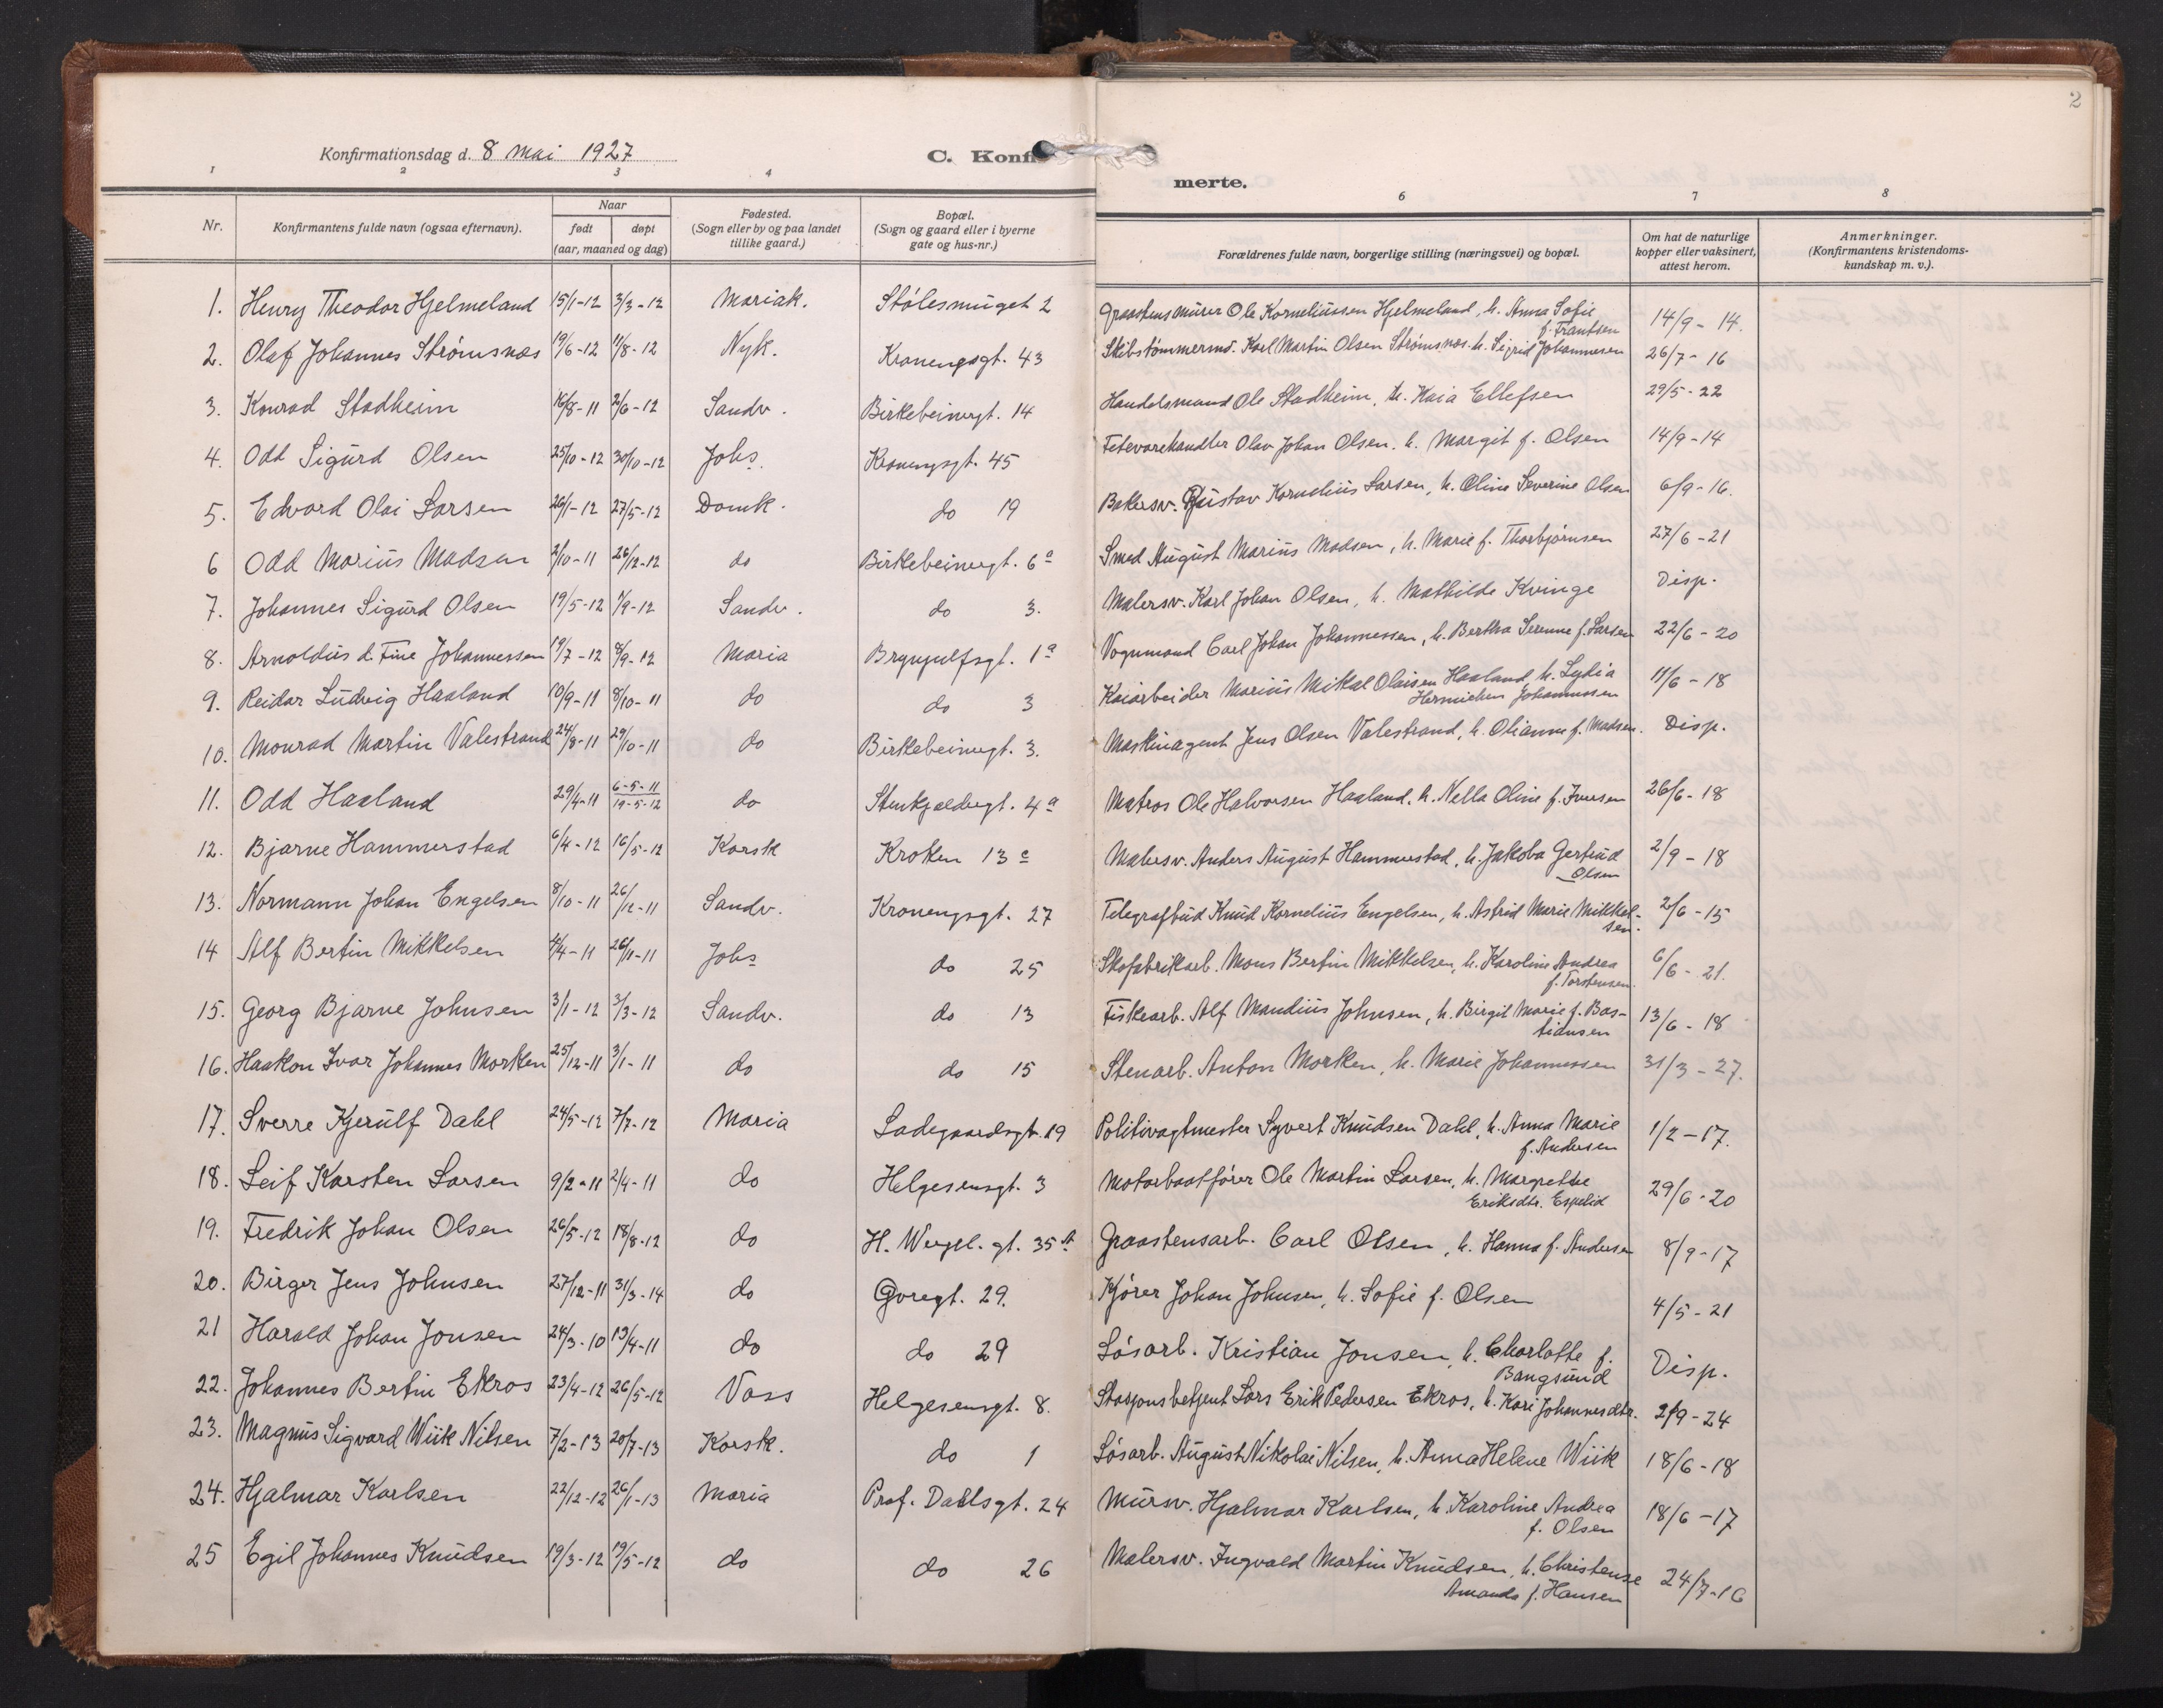 2
Konfirmationsdag d. 8 Mai 1927
C. Konfi
merte.
1 2 3 4 6 7 8
Nr.
Konfirmantens fulde navn (ogsaa efternavn).
Naar
født døpt
(aar, maaned og dag)
Fødested.
(Sogn eller by og paa landet
tillike gaard.)
Bopæl.
(Sogn og gaard eller i byerne
gate og hus-nr.)
Forældrenes fulde navn, borgerlige stilling (næringsvei) og bopæl.
Om hat de naturlige
kopper eller vaksinert,
attest herom.
Anmerkninger.
(Konfirmantens kristendoms-
kundskap m. v.).
1. Henry Theodor Hjelmeland 15/1-12 3/3-12 Mariak. Stølesmuget 2 Graastensmurer Ole Korneliussen Hjelmeland, h. Anna Sofie
f. Frantsen 14/9-14.
2. Olaf Johannes Strømsnæs 19/6-12 11/8-12 Nyk. Kronengsgt. 43 Skibstømmermd. Karl Martin Olsen Strømsnæs. h. Sigrid Johannesen 26/7-16
3. Konrad Stadheim 16/8-11 2/6-12 Sandv. Birkebeinergt. 14 Handelsmand Ole Stadheim, h. Kaia Ellefsen 29/5-22
4. Odd Sigurd Olsen 25/10-12 30/10-12 Johs. Kronengsgt. 45 Fetevarehandler Olav Johan Olsen. h. Margit f. Olsen 14/9-14
5. Edvard Olai Larsen 26/1-12 27/5-12 Domk. do 19 Bakersv. Gustav Kornelius Larsen, h. Oline Severine Olsen 6/9-16.
6 Odd Marius Madsen 2/10-11 26/12-12 do Birkebeinergt. 6a Smed August Marius Madsen, h. Marie f. Thorbjørnsen 27/6-21
7. Johannes Sigurd Olsen 19/5-12 1/9-12 Sandv. do 3. Malersv. Karl Johan Olsen, h. Mathilde Kvinge Disp.
8. Arnoldus d. Fine Johannessen 19/7-12 8/9-12 Maria Brynjulfsgt. 1a Vognmand Carl Johan Johannessen, h. Bertha Serenne f. Larsen 22/6-20
9. Reidar Ludvig Haaland 10/9-11 8/10-11 do do 3 Kaiarbeider Marius Mikal Olaisen Haaland h. Lydia
Hermichen Johannessen 11/6-18
10. Monrad Martin Valestrand 24/8-11 29/10-11 do Birkebeinergt. 3. Maskinagent Jens Olsen Valestrand, h. Olianne f. Madsen. Disp.
11. Odd Haaland 29/4-11 6-5-11
19-5-12 do Stenkjeldergt. 4a Matros Ole Halvorsen Haaland. h. Nella Oline f. Iversen 26/6-18
12. Bjarne Hammerstad 6/4-12 16/5-12 Korsk Kroken 13c Malersv. Anders August Hammerstad, h. Jakoba Gertrud
Olsen 2/9-18
13. Normann Johan Engelsen 8/10-11 26/12-11 Sandv. Kronengsgt. 27 Telegrafbud Knud Kornelius Engelsen, h. Astrid Marie Mikkel-
sen. 2/6-15
14 Alf Bertin Mikkelsen 4/4-11 26/11-11 Johs do 25 Skofabrikarb. Mons Bertin Mikkelsen, h. Karoline Andrea
f. Torstensen. 6/6-21.
15. Georg Bjarne Johnsen 3/1-12 3/3-12 Sandv. do 13 Fiskearb. Alf Mandius Johnsen, h. Birgit Marie f. Bas-
tiansen 13/6-18
16. Haakon Ivar Johannes Morken 25/12-11 3/1-11 do do 15 Stenarb. Anton Morken, h. Marie Johannessen 31/3-27.
17. Sverre Kjerulf Dahl 24/5-12 7/7-12 Maria Ladegaardsgt. 19 Politivagtmester Syvert Knudsen Dahl, h. Anna Marie
f. Andersen 1/2-17.
18. Leif Karsten Larsen 9/2-11 2/4-11 do Helgesensgt. 3 Motorbaatfører Ole Martin Larsen, h. Margrethe
Eriksdtr. Espelid 29/6-20
19. Fredrik Johan Olsen 26/5-12 18/8-12 do H. Wergel. gt. 35 Graastensarb. Carl Olsen, h. Hanna f. Andersen 8/9-17
20. Birger Jens Johnsen 27/12-11 31/3-14 do Øvregt. 29. Kjører Johan Johnsen, h. Sofie f. Olsen 4/5-21
21 Harald Johan Jonsen 24/3-10 13/4-11 do do 29 Løsarb. Kristian Jonsen, h. Charlotte f.
Bangsund Disp.
22. Johannes Bertin Ekros 23/4-12 26/5-12 Voss Helgesensgt. 8. Stasjonsbetjent Lars Erik Pedersen Ekros, h. Kari Johannesdtr. 2/9-24
23. Magnus Sigvard Wiik Nilsen 7/2-13 20/7-13 Korsk. do 1 Løsarb. August Nikolai Nilsen, h. Anna Helene Wiik 18/6-18
24. Hjalmar Karlsen 22/12-12 26/1-13 Maria Prof. Dahlsgt. 24 Mursv. Hjalmar Karlsen, h. Karoline Andrea
f. Olsen 18/6-17
25 Egil Johannes Knudsen 19/3-12 19/5-12 do do 26 Malersv. Ingvald Martin Knudsen, h. Christense
Amanda f. Hansen 24/7-16